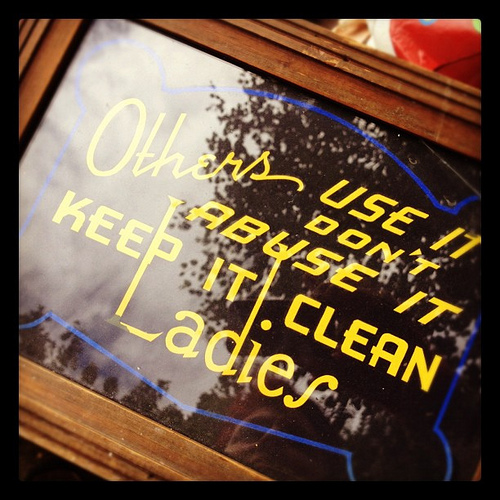 Others USE IT
DON'T
ABUSE IT
KEEP IT CLEAN
Ladies